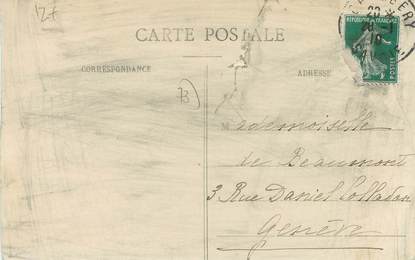 12+
CARTE POSTALE
CORRESPONDANCE
ADRESSE
RÉPUBLIQUE FRANÇAISE
POSTES
73
Mademoiselle
de Beaumont
3 Rue Daniel Colladon
Genève